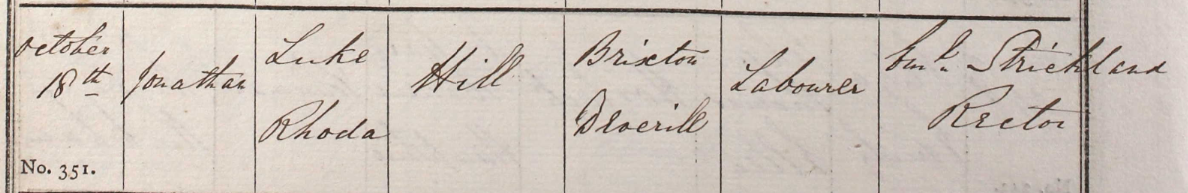 October
18th
Jonathan
Luke
Rhoda
Hill
Brixton
Deverill
Labourer
Strickland
Rector
No. 351.